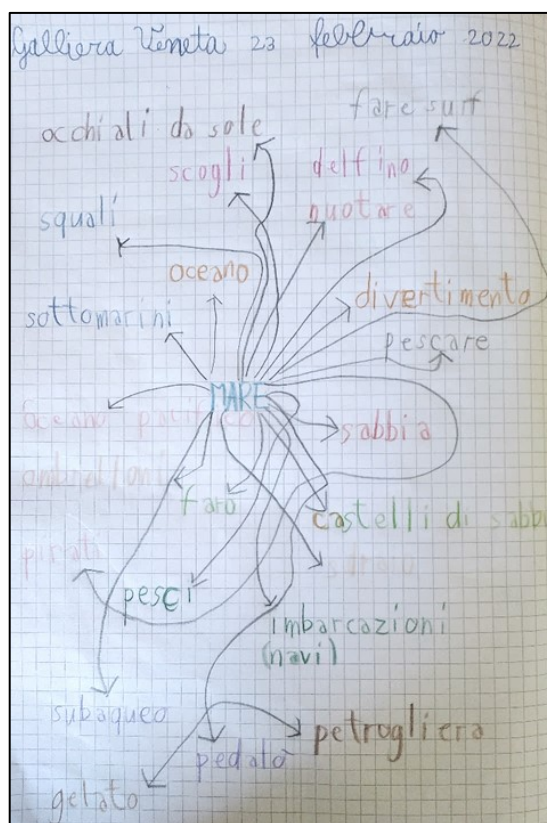 Galliera Veneta 23 febbraio 2022
fare surf
occhiali da sole
scogli
delfino
nuotare
squali
oceano
divertimento
sottomarini
pescare
MARE
oceano pacifico
sabbia
ombrelloni
faro
castelli di sabbi
pirati
pesci
imbarcazioni
(navi)
subaqueo
petrogliera
pedalò
gelato